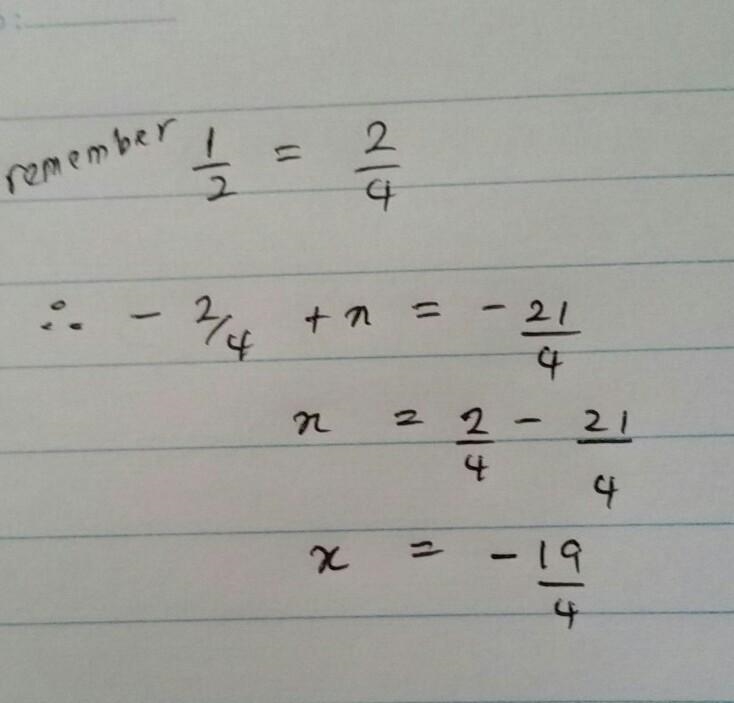 remember 1/2 = 2/4
∴ - 2/4 + x = - 21/4
x = 2/4 - 21/4
x = - 19/4